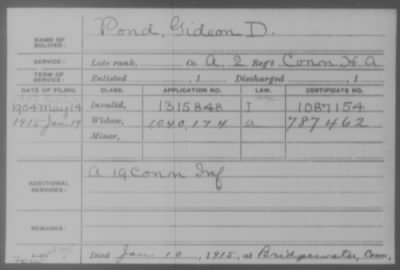 NAME OF SOLDIER: Pond, Gideon D.
SERVICE: Late rank, Co A, 2 Reg't Conn H A
TERM OF SERVICE: Enlisted , 1 Discharged , 1
DATE OF FILING. CLASS. APPLICATION NO. LAW. CERTIFICATE NO.
1904 May 14 Invalid, 1315848 I 1087154
1915 Jan 19 Widow, 1,040,174 a 787462
Minor,
ADDITIONAL SERVICES: A 19 Conn Inf
REMARKS:
Died Jan 10, 1915, at Bridgewater, Conn,